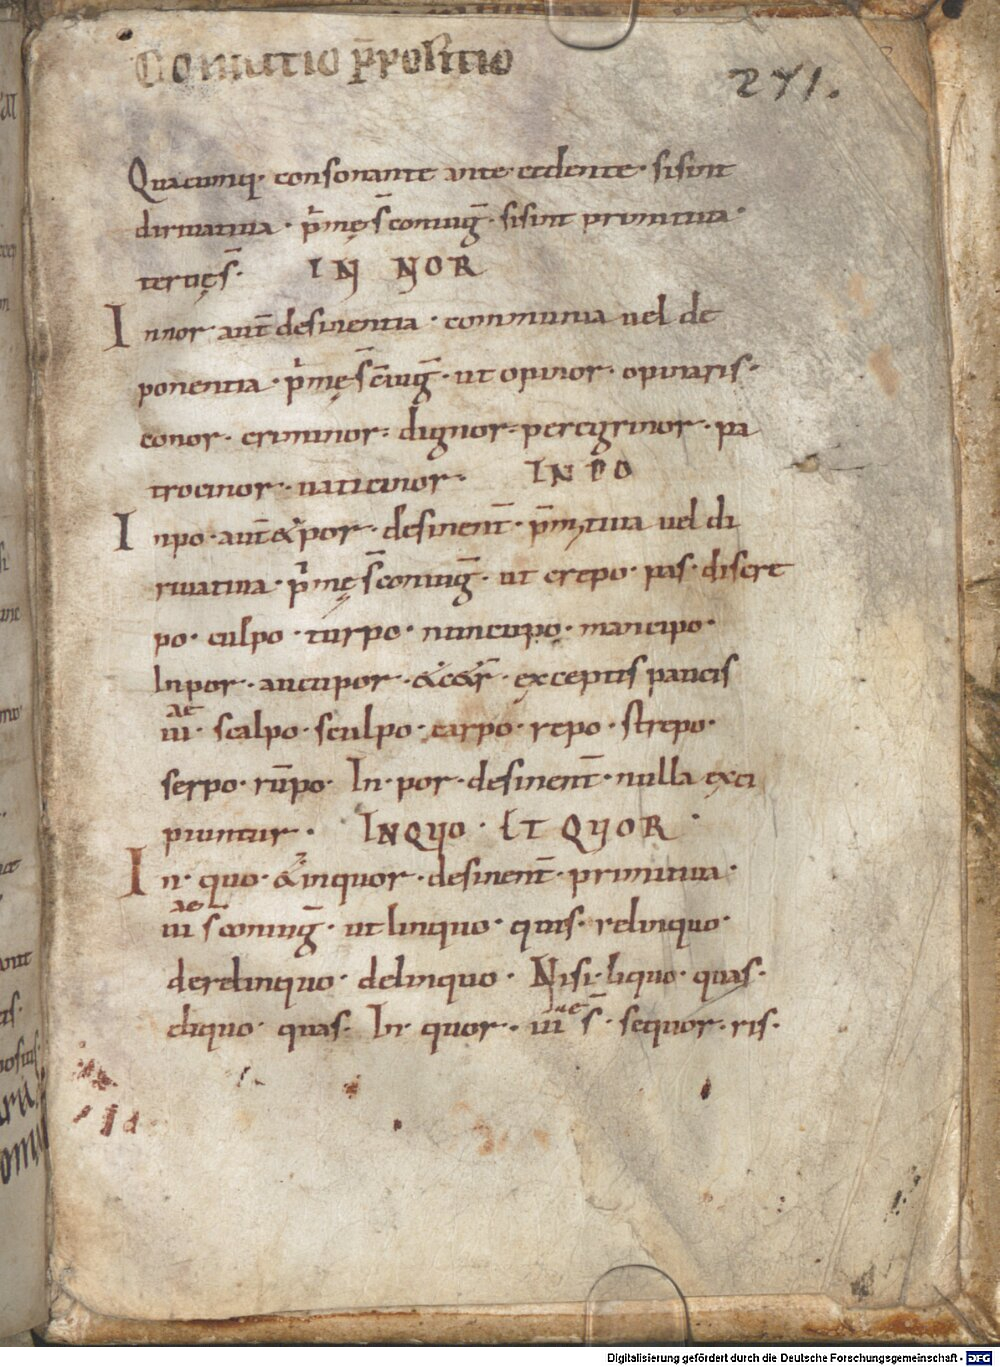 271.
Quacumq; consonante ante cedente · si sint
diriuatiua · p̄mę s̄ coniuḡ · si sint primitiua ·
tertię s̄ · IN NOR
In nor aut̄ desinentia · communia uel de
ponentia · p̄mę s̄ c̄iuḡ · ut opinor · opinaris ·
conor · criminor · dignor · peregrinor · pa
trocinor · uaticinor · IN PO
In po · aut̄ & por · desinent̄ · p̄mitiua uel di
riuatiua · p̄mę s̄ coniuḡ · ut crepo · pas · discre
po · culpo · turpo · nuncupo · mancipo ·
In por · aucupor · & c&̄r · exceptis paucis
iii ae · scalpo · sculpo · carpo · repo · strepo ·
serpo · rūpo · In · por · desinent̄ · nulla exci
piuntur · IN QUO · ET QUOR ·
In · quo · & in quor · desinent̄ · primitiua ·
iii ae s̄ coniuḡ · ut linquo · quis · relinquo ·
derelinquo · delinquo · Nisi · liquo · quas ·
eliquo · quas · In quor · iii ae s̄ · sequor · ris ·
Digitalisierung gefördert durch die Deutsche Forschungsgemeinschaft - DFG